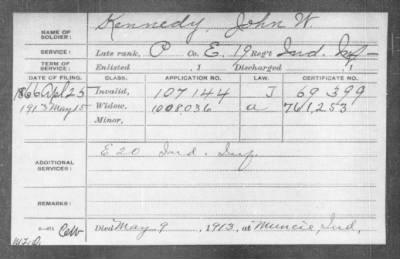 NAME OF SOLDIER: Kennedy, John W.
SERVICE: Late rank, P Co. E, 19 Reg't Ind. Inf.
TERM OF SERVICE: Enlisted , 1 Discharged , 1
DATE OF FILING. CLASS. APPLICATION NO. LAW. CERTIFICATE NO.
1866 Apl 25 Invalid, 107144 J 69399
1913 May 15 Widow, 1008,036 a 761,253
Minor,
ADDITIONAL SERVICES: E 20 Ind. Inf.
REMARKS:
Died May 9, 1913, at Muncie, Ind,